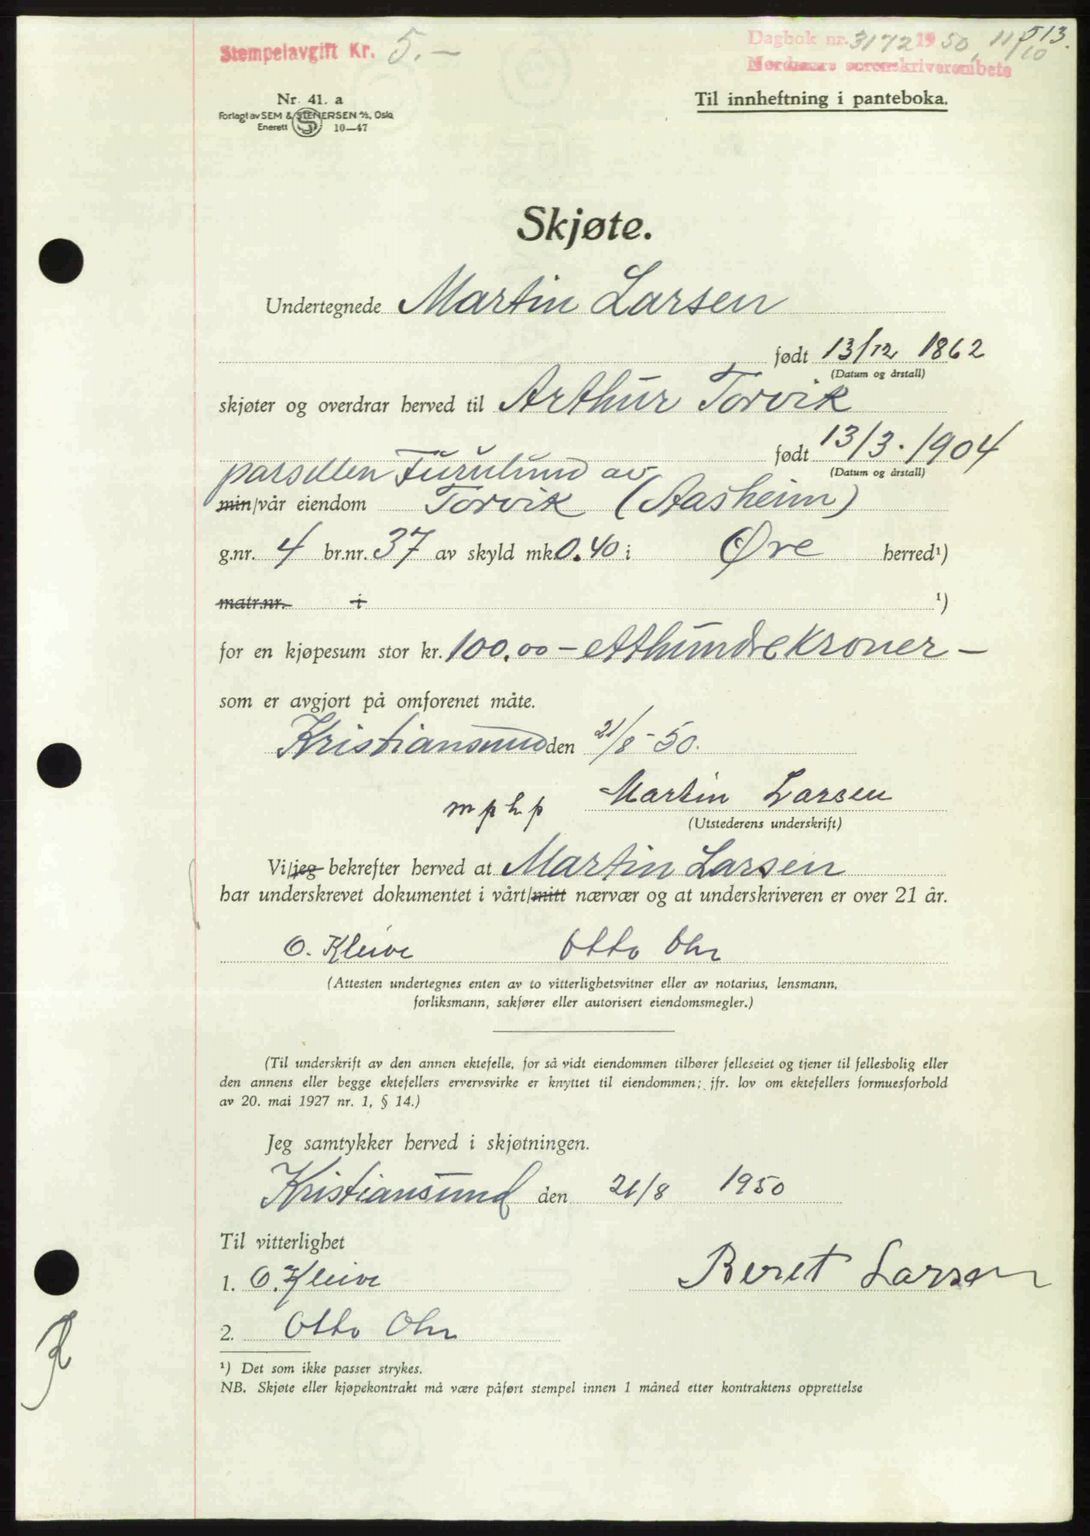 Stempelavgift Kr. 5.—
Dagbok nr. 3172 1950, 11/10
513.
Nordmøre sorenskriverembete
Nr. 41. a
Forlagt av SEM & STENERSEN A/S, Oslo
Enerett SS 10—47
Til innheftning i panteboka.
Skjøte.
Undertegnede Martin Larsen
født 13/12 1862
(Datum og årstall)
skjøter og overdrar herved til Arthur Torvik
født 13/3. 1904
(Datum og årstall)
parsellen Furulund av
min/vår eiendom Torvik (Aasheim)
g.nr. 4 br.nr. 37 av skyld mk. 0.40 i Øre herred¹)
matr.nr. i ¹)
for en kjøpesum stor kr. 100.00 — etthundrekroner —
som er avgjort på omforenet måte.
Kristiansund den 21/8-50.
m p h p Martin Larsen
(Utstederens underskrift)
Vi/jeg bekrefter herved at Martin Larsen
har underskrevet dokumentet i vårt/mitt nærvær og at underskriveren er over 21 år.
O. Kleive Otto Ohr
(Attesten undertegnes enten av to vitterlighetsvitner eller av notarius, lensmann,
forliksmann, sakfører eller autorisert eiendomsmegler.)
(Til underskrift av den annen ektefelle, for så vidt eiendommen tilhører felleseiet og tjener til fellesbolig eller
den annens eller begge ektefellers ervervsvirke er knyttet til eiendommen; jfr. lov om ektefellers formuesforhold
av 20. mai 1927 nr. 1, § 14.)
Jeg samtykker herved i skjøtningen.
Kristiansund den 21/8 1950
Til vitterlighet
1. O. Kleive Beret Larsen
2. Otto Ohr
¹) Det som ikke passer strykes.
NB. Skjøte eller kjøpekontrakt må være påført stempel innen 1 måned etter kontraktens opprettelse